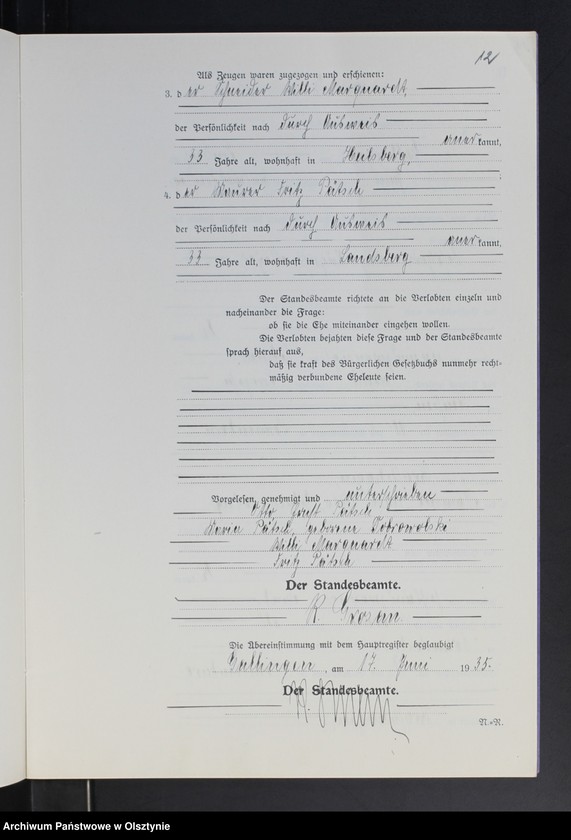 12
Als Zeugen waren zugezogen und erschienen:
3. der Schneider Willi Marquardt,
der Persönlichkeit nach durch Ausweis
anerkannt,
33 Jahre alt, wohnhaft in Heilsberg,
4. der Maurer Fritz Pätsch
der Persönlichkeit nach durch Ausweis
anerkannt,
33 Jahre alt, wohnhaft in Landsberg
Der Standesbeamte richtete an die Verlobten einzeln und
nacheinander die Frage:
ob sie die Ehe miteinander eingehen wollen.
Die Verlobten bejahten diese Frage und der Standesbeamte
sprach hierauf aus,
daß sie kraft des Bürgerlichen Gesetzbuchs nunmehr recht-
mäßig verbundene Eheleute seien.
Vorgelesen, genehmigt und unterschrieben
Otto Ernst Pätsch
Maria Pätsch, geborene Dobrowolski
Willi Marquardt
Fritz Pätsch
Der Standesbeamte.
R. Grosan
Die Übereinstimmung mit dem Hauptregister beglaubigt
Gallingen, am 17. Juni 1935.
Der Standesbeamte.
N.=R.
Archiwum Państwowe w Olsztynie